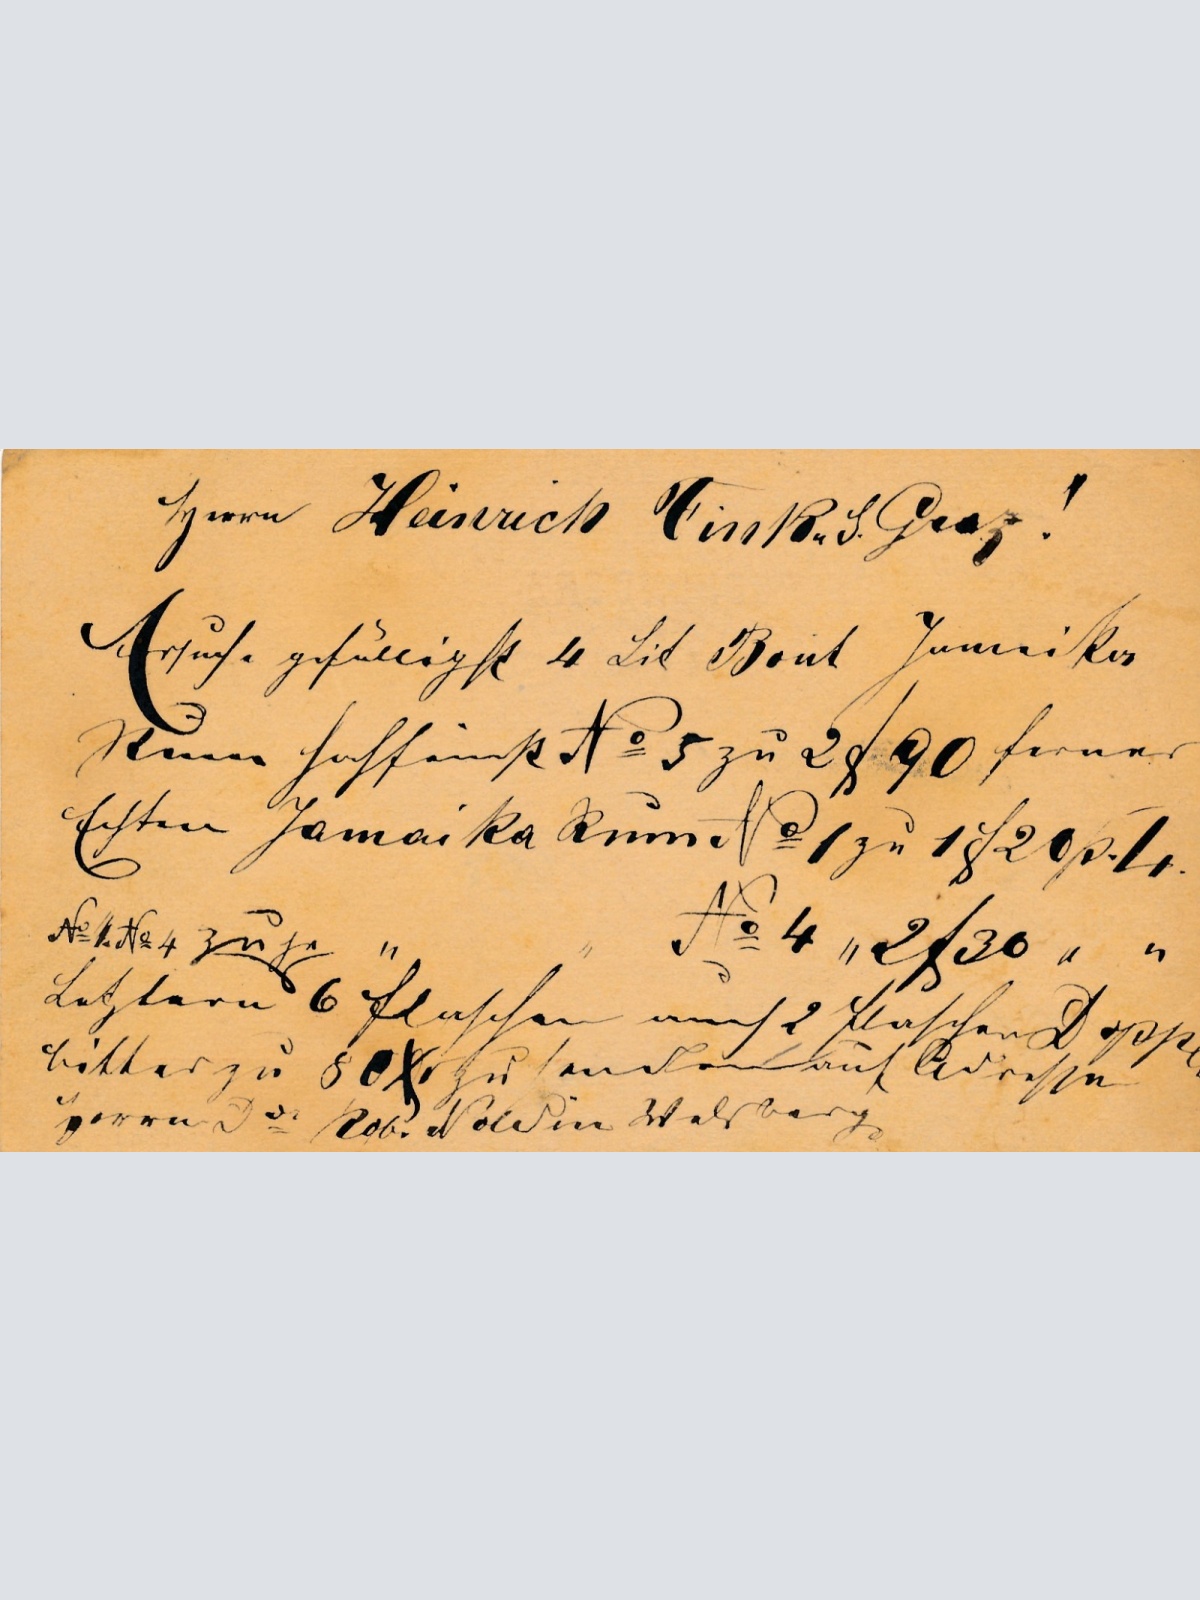 Herrn Heinrich Fink. S. Graz!
Ersuche gefälligst 4 Lit Bout Jamaika
Rum hochfeinst No 5 zu 2 f 90 ferner
Echten Jamaika Rum No 1 zu 1 f 20 p. L.
No 1. No 4 zu je " " No 4 " 2 f 30 " "
Letztern 6 Flaschen auch 2 Flaschen Doppel
bitter zu 80 Xr zu senden auf Adresse
Herrn Dor Rob. Noldin Welsberg